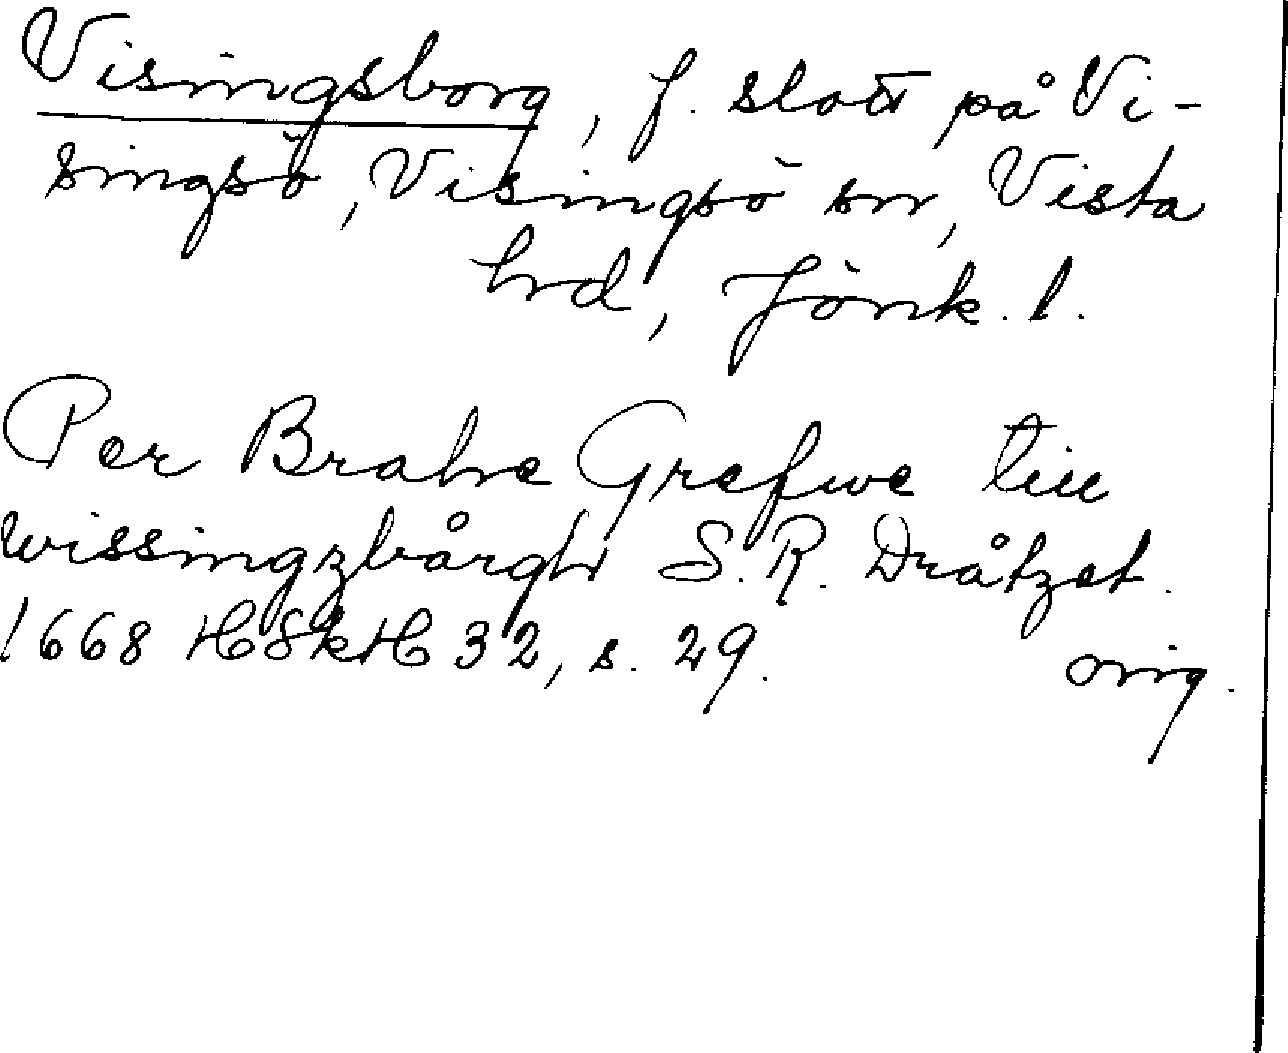 Visingsborg, f. slott på Vi-
singsö, Visingsö sn, Vista
hd, Jönk. l.
Per Brahe Grefwe till
wissingzbårgh S. R. Dråtzet.
1668 HSkH 32, s. 29. orig.